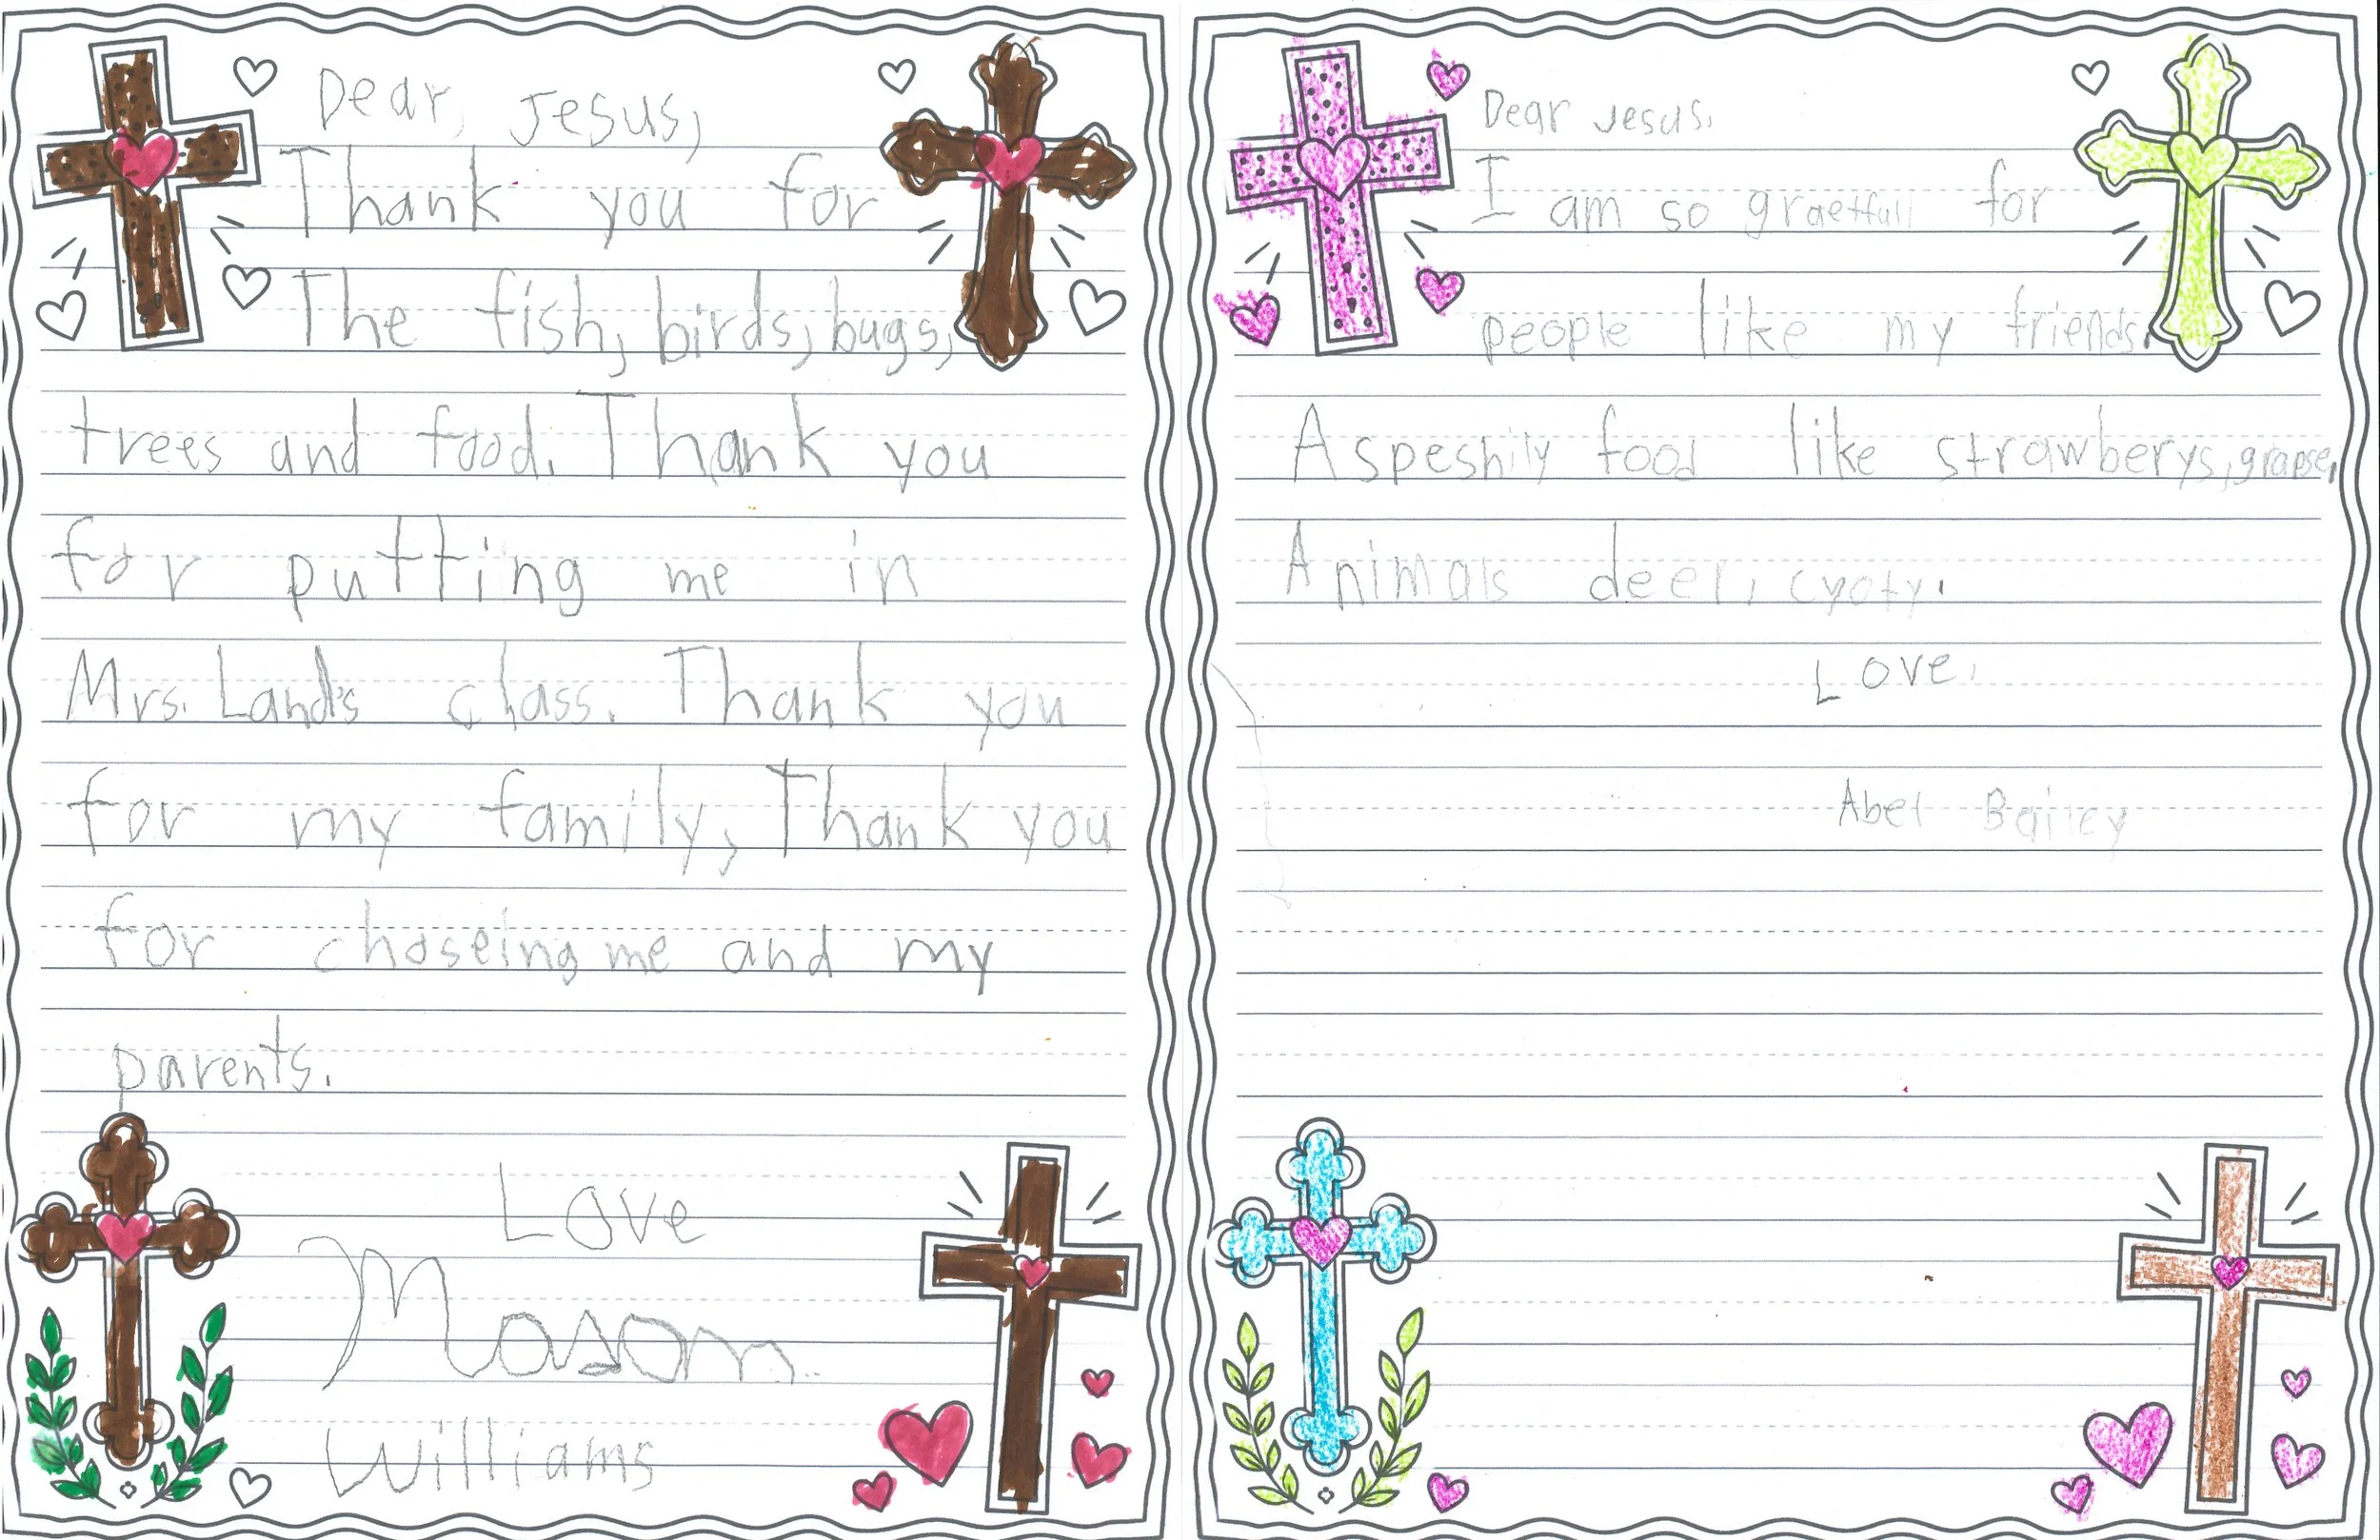 Dear, Jesus,
Thank you for
The fish, birds, bugs,
trees and food. Thank you
for putting me in
Mrs. Land's class. Thank you
for my family, Thank you
for choseing me and my
parents.
Love
Mason
Williams
Dear Jesus,
I am so graetfull for
people like my friends.
Aspeshily food like strawberys, grapse,
Animals deer, cyoty.
Love,
Abel Bailey